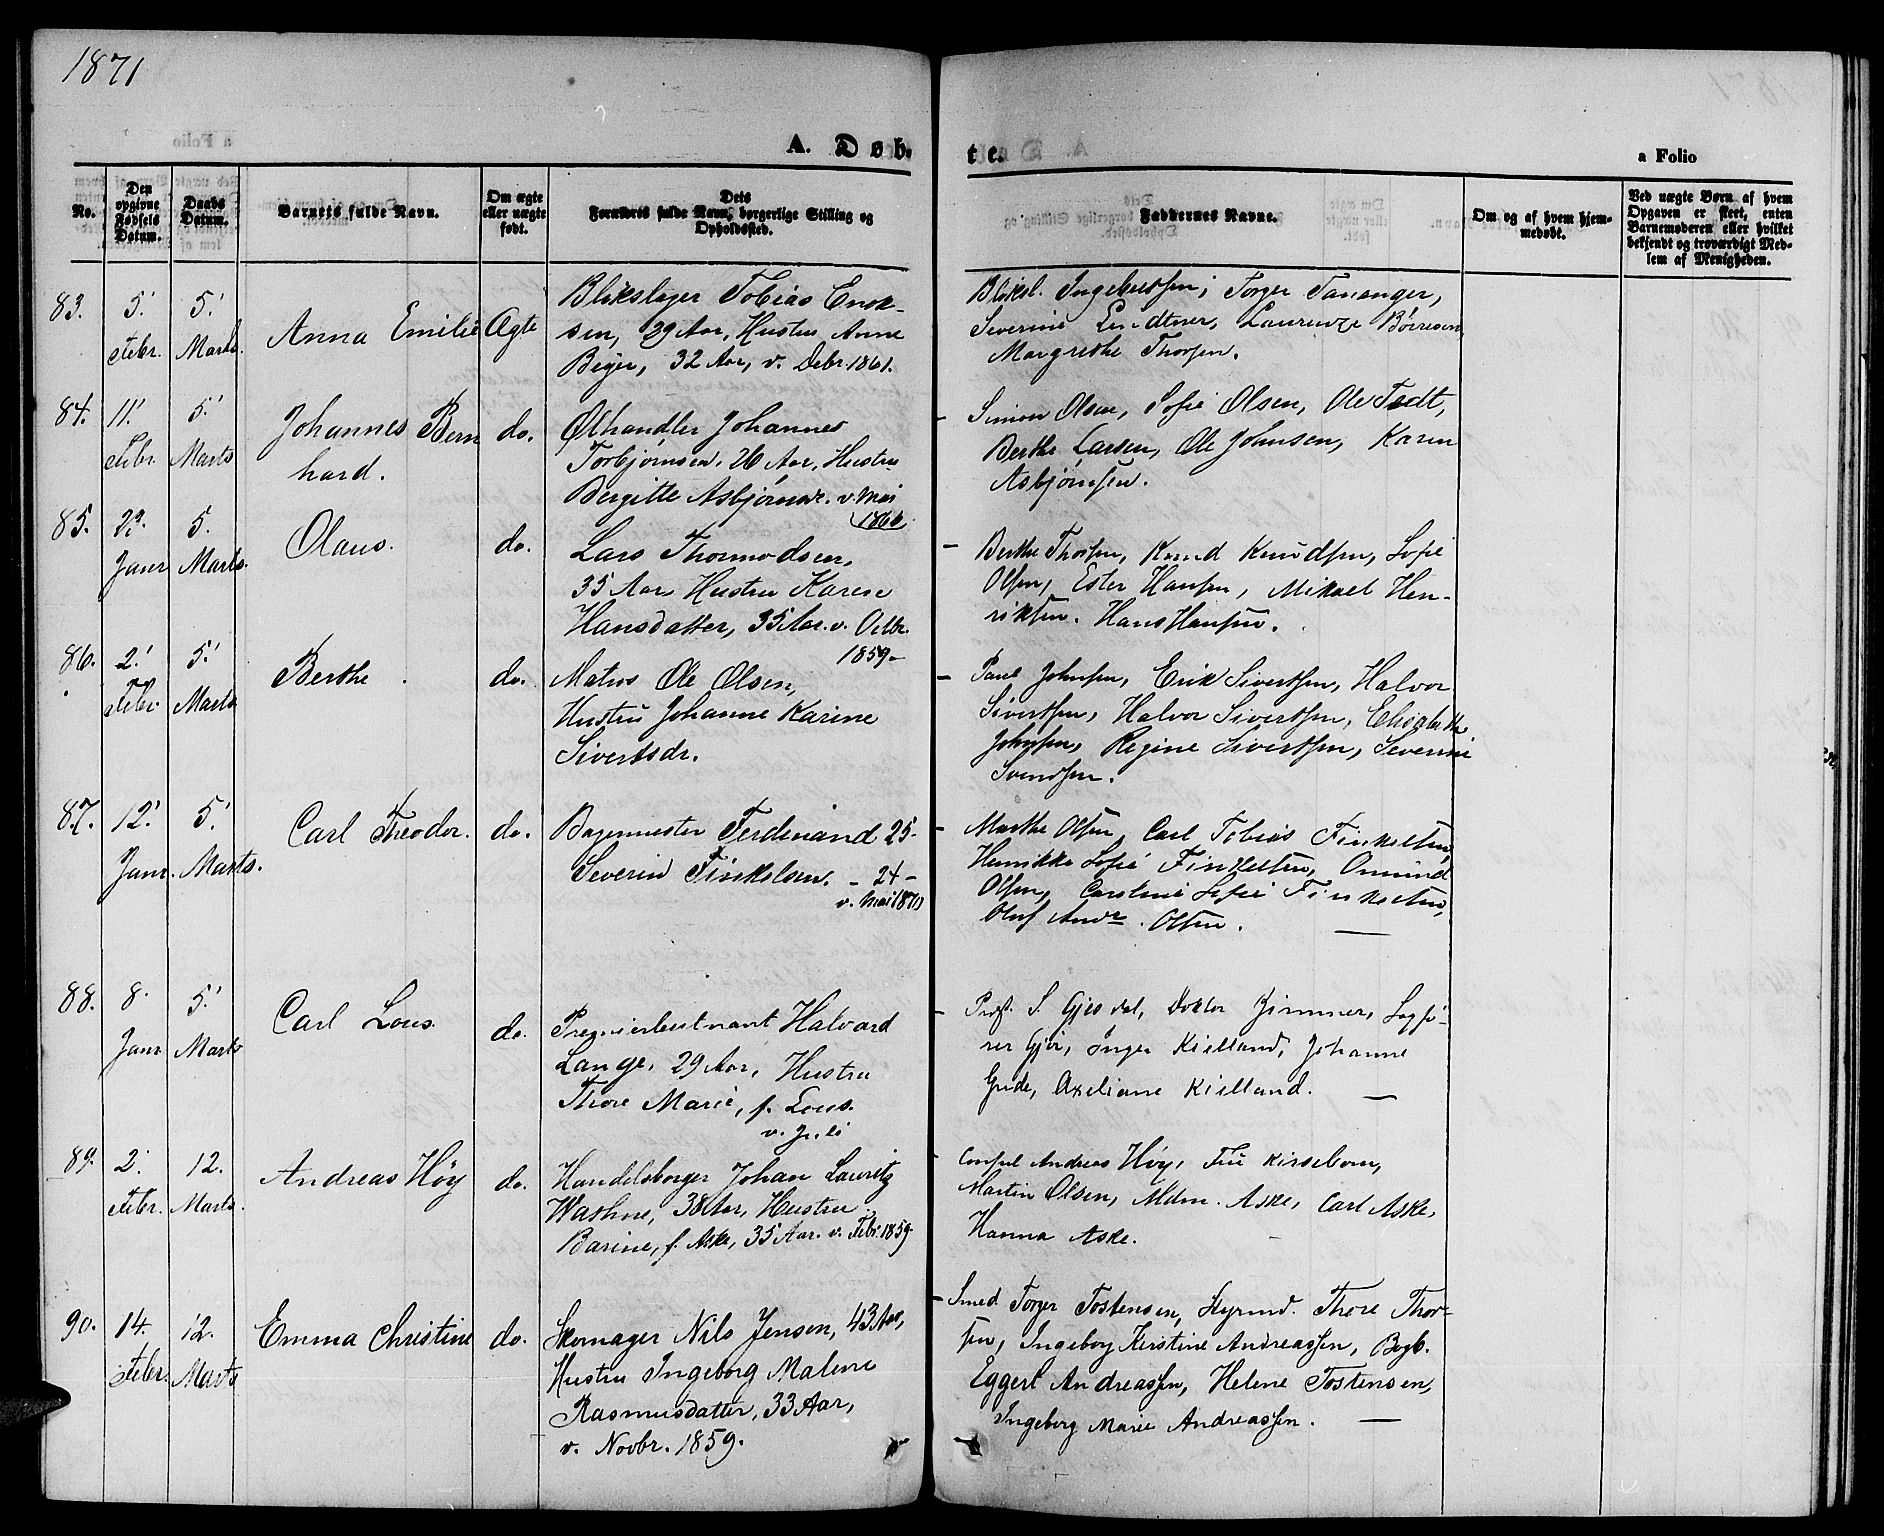 1871
A. Døb-
te.
a Folio
No.
Den opgivne Fødsels Datum.
Daabs Datum.
Barnets fulde Navn.
Om ægte eller uægte født.
Dets Forældres fulde Navn, borgerlige Stilling og Opholdssted.
Faddernes Navne.
Om og af hvem hjemmedøbt.
Ved uægte Børn af hvem Opgaven er skeet, enten Barnemoderen eller hvilket bekjendt og troværdigt Medlem af Menigheden.
83.
5'
Febr.
5'
Marts.
Anna Emilie
Ægte
Blikslager Tobias Enok-
sen, 29 Aar, Hustru Anne
Beyer, 32 Aar, v. Debr. 1861.
Bliksl. Ingebretsen, Torger Tananger,
Severine Lindtner, Laurenze Børresen,
Margrethe Thorsen.
84.
11'
Febr.
5'
Marts
Johannes Bern
hard.
do.
Ølhandler Johannes
Torbjørnsen. 26 Aar, Hustru
Bergitte Asbjørnsdr. v. Mai
186
Simon Olsen, Sofie Olsen, Ole Tedt,
Berthe Larsen, Ole Johnsen, Karen
Asbjørnsen.
85.
Janr
5.
Marts.
Olaus.
do.
Lars Thormodsen,
35 Aar, Hustru Karen
Hansdatter, 35 Aar. v. Octbr.
1859 -
- Berthe Thorsen, Knud Knudsen, Sofie
Olsen, Ester Hansen, Mikael Hen-
riksen. Hans Hansen.
86.
2'
Febr
5'
Marts
Berthe
do.
Matros Ole Olsen,
Hustru Johanne Karine
Sivertsdr.
- Paul Johnsen, Erik Sivertsen, Halvor
Sivertsen, Halvor Sivertsen, Elisabeth
Johnsen, Regine Sivertsen, Severine
Svendsen.
87.
12'
Janr.
5'
Marts.
Carl Theodor.
do.
Bagermester Ferdinand 25 -
Severin Finkelsen. - 24 -
v. Mai 1870
- Marthe Olsen, Carl Tobias Finkelsen,
Henrikke Sofie Finkelsen, Omund
Olsen, Caroline Sofie Finkelsen,
Oluf Andr. Olsen. -
88.
8.
Janr
5'
Marts
Carl Lous.
do.
Premierleutnant Halvard
Lange, 29 Aar, Hustru
Thore Marie, f. Lous.
v. Juli
- Prof. S. Gjesdal, Doktor Zimmer, Sagfø-
rer Gjør, Inger Kielland, Johanne
Gude, Axeliane Kielland. -
89.
2'
Febr.
12.
Marts.
Andreas Høy
do.
Handelsborger Johan Lauritz
Wathne, 38 Aar, Hustru
Barine, f. Aske, 35 Aar. v. Febr. 1859
Consul Andreas Høy, Fru Kirsebom,
Martin Olsen, Mdm. Aske, Carl Aske,
Hanna Aske.
90.
14.
Febr.
12.
Marts
Emma Christine
do.
Skomager Nils Jensen, 43 Aar,
Hustru Ingeborg Malene
Rasmusdatter, 33 Aar,
v. Novbr. 1859.
- Smed Torger Tostensen, Styrmd. Thore Thor-
sen, Ingeborg Kirstine Andreassen, Bogb.
Eggert Andreassen, Helene Tostensen,
Ingeborg Marie Andreassen. -